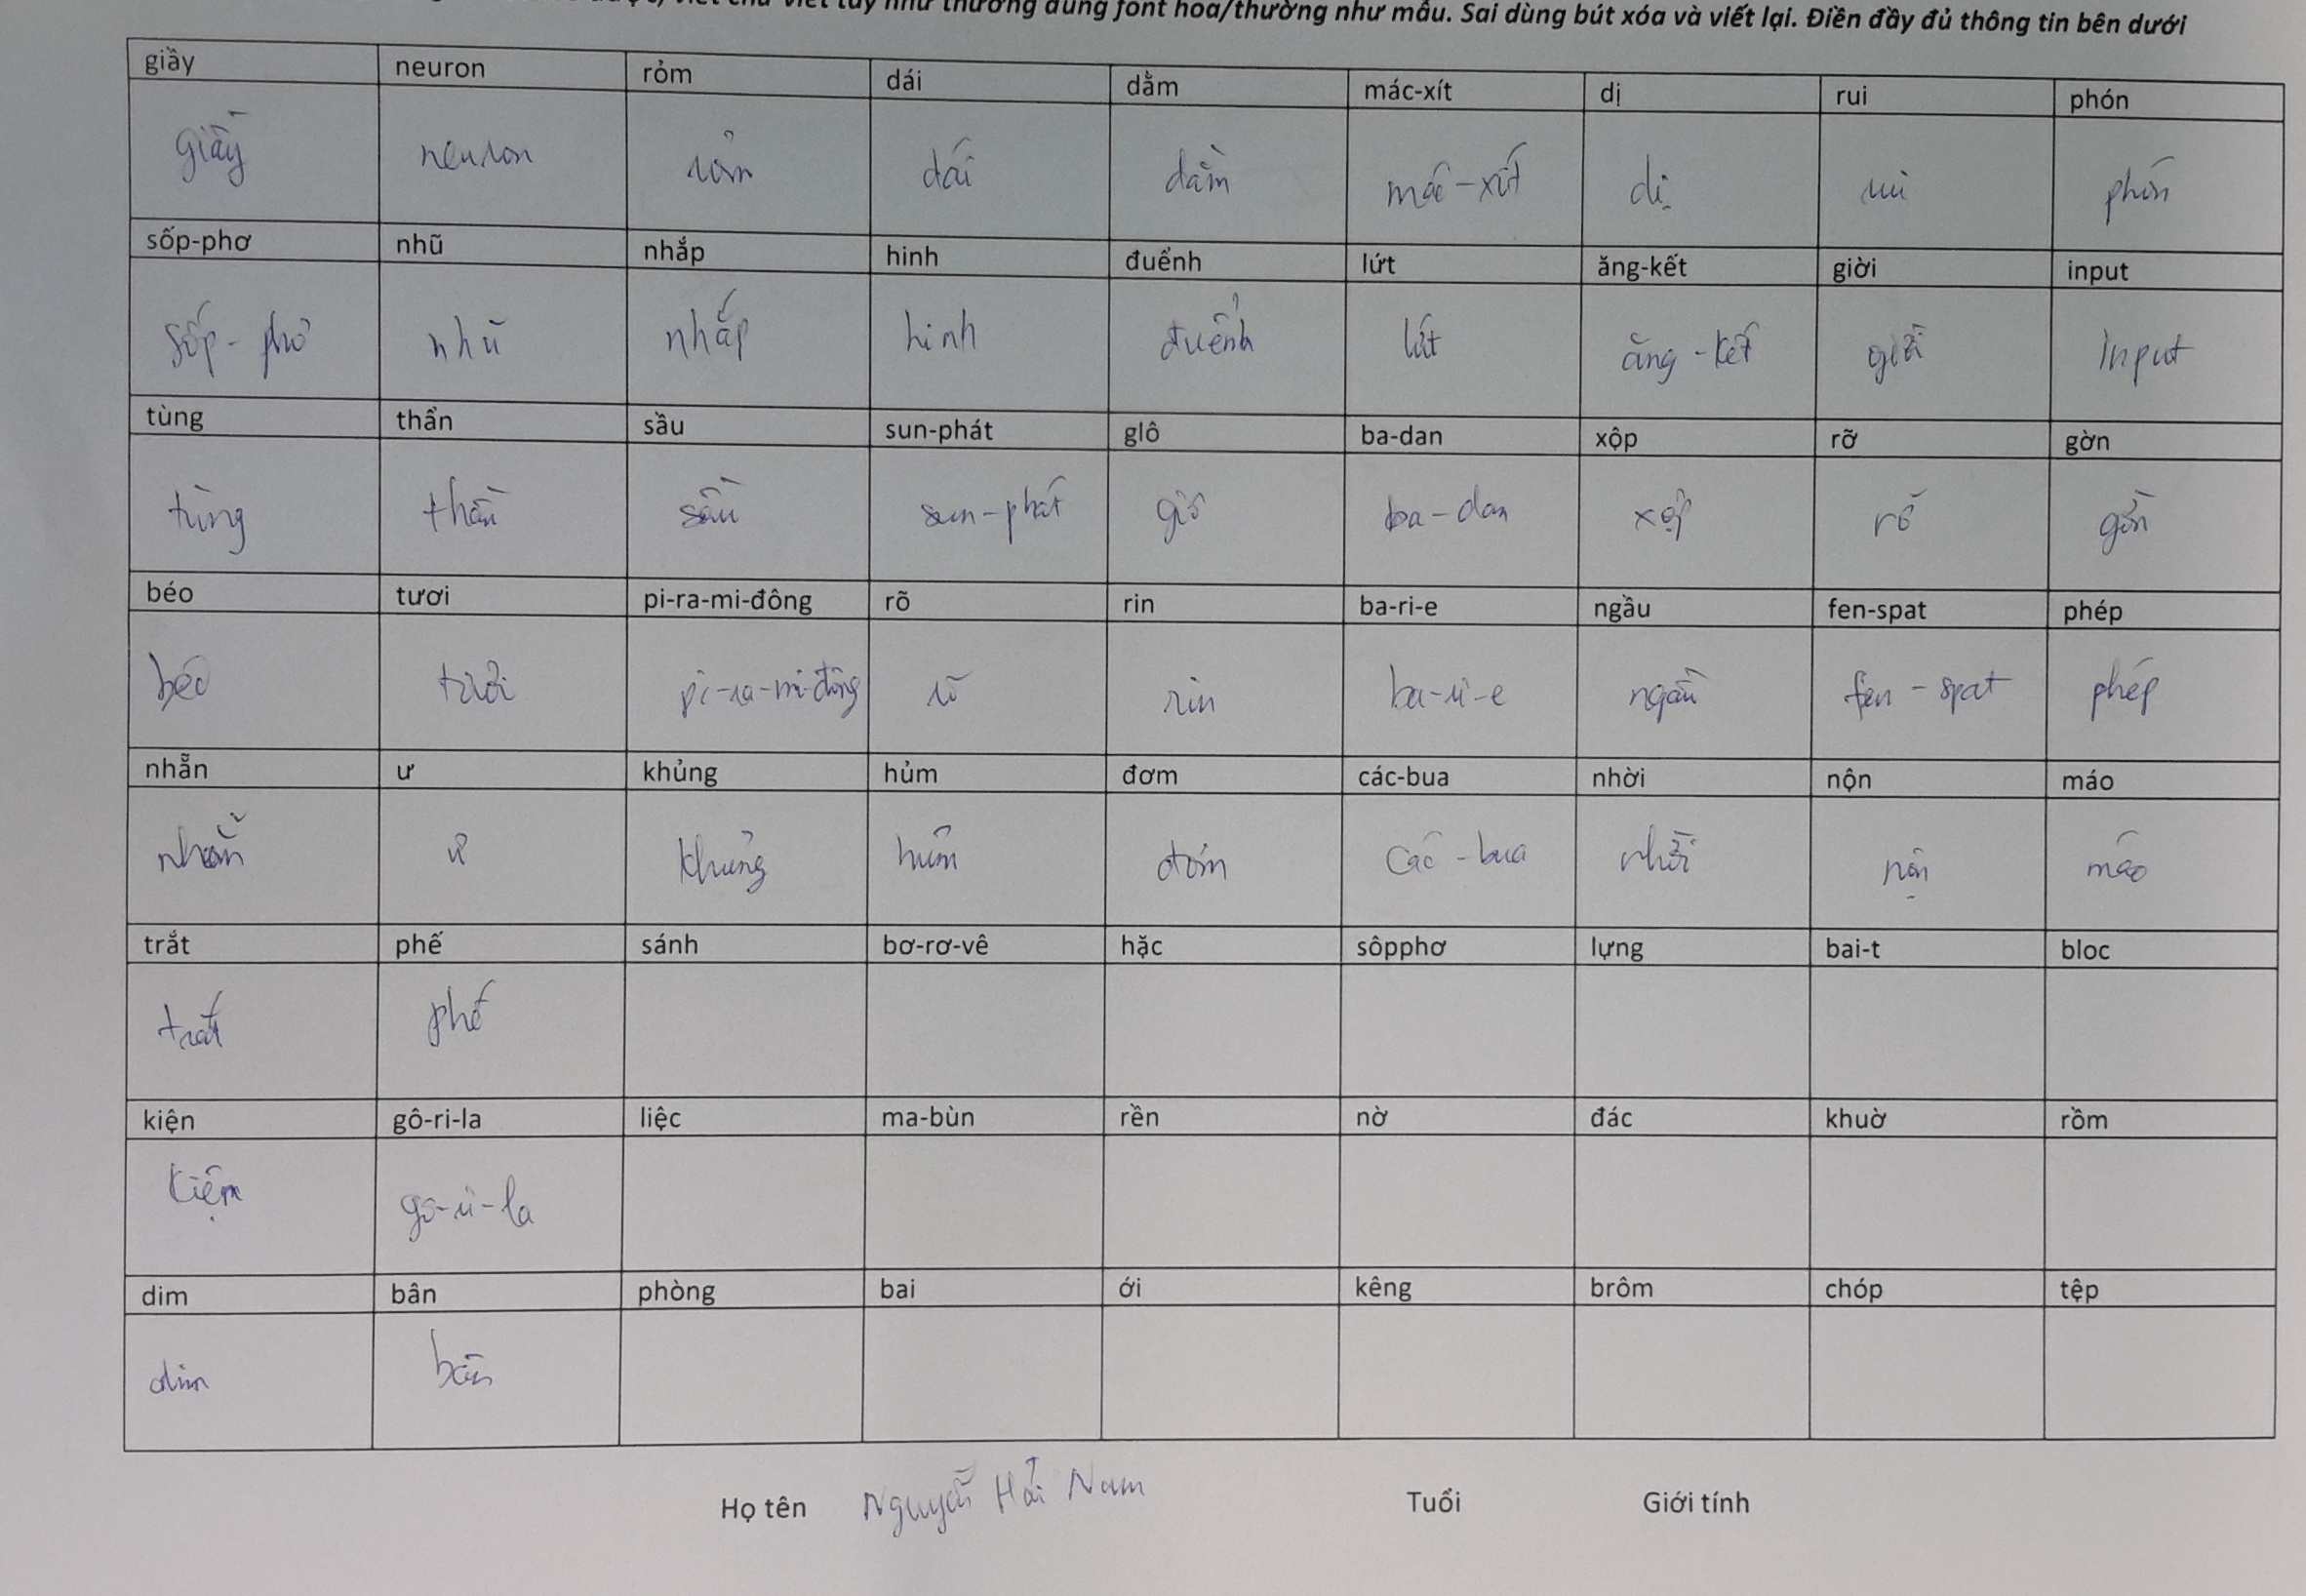 viết chữ viết tay như thường dùng font hoa/thường như mẫu. Sai dùng bút xóa và viết lại. Điền đầy đủ thông tin bên dưới
giầy neuron rỏm dái dằm mác-xít dị rui phón
giầy neuron rỏm dái dằm mác-xít dị rui phón
sốp-phơ nhũ nhắp hinh đuểnh lứt ăng-kết giời input
sốp-phơ nhũ nhắp hinh đuểnh lứt ăng-kết giời input
tùng thẩn sầu sun-phát glô ba-dan xộp rỡ gờn
tùng thẩn sầu sun-phát glô ba-dan xộp rỡ gờn
béo tươi pi-ra-mi-đông rõ rin ba-ri-e ngầu fen-spat phép
béo tươi pi-ra-mi-đông rõ rin ba-ri-e ngầu fen-spat phép
nhẵn ư khủng hủm đơm các-bua nhời nộn máo
nhẵn ư khủng hủm đơm các-bua nhời nộn máo
trắt phế sánh bơ-rơ-vê hặc sôpphơ lựng bai-t bloc
trắt phế
kiện gô-ri-la liệc ma-bùn rền nờ đác khuờ rồm
kiện gô-ri-la
dim bân phòng bai ới kêng brôm chóp tệp
dim bân
Họ tên Nguyễn Hải Nam Tuổi Giới tính